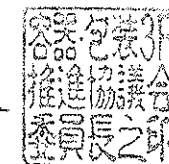 容器・包装
推進協議会
委員長之印